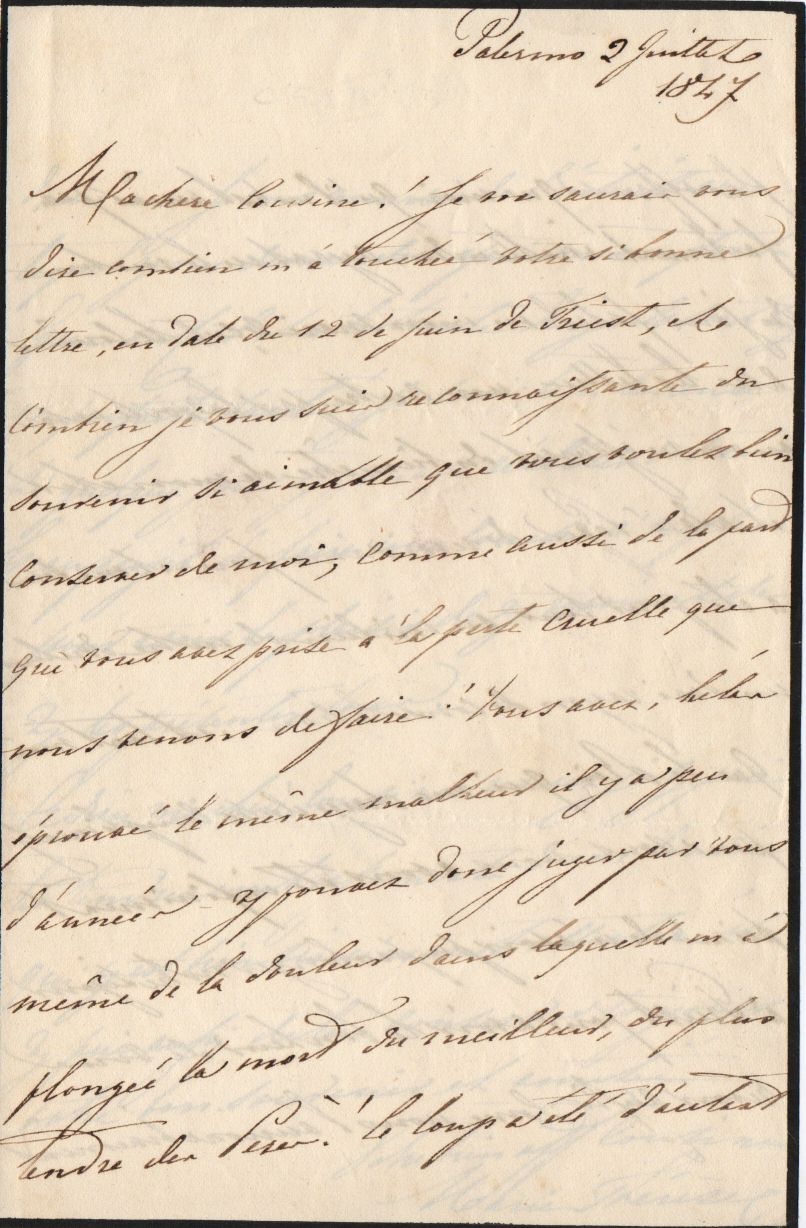 Palermo 2 Juillet
1847
Ma chere Cousine! Je ne saurais vous
dire combien m'à touchée votre si bonne
lettre, en date du 12 de juin de Triest, et
combien je vous suis reconnaissante du
souvenir si aimable que vous voulez bien
conserver de moi, comme aussi de la part
que vous avez prise à la perte cruelle que
nous venons de faire! Vous avez, hélas
éprouvé le même malheur il y a peu
d'années - y pouvez donc juger par vous
même de la douleur dans laquelle m'à
plongée la mort du meilleur, du plus
tendre des Peres! le coup a été d'autant